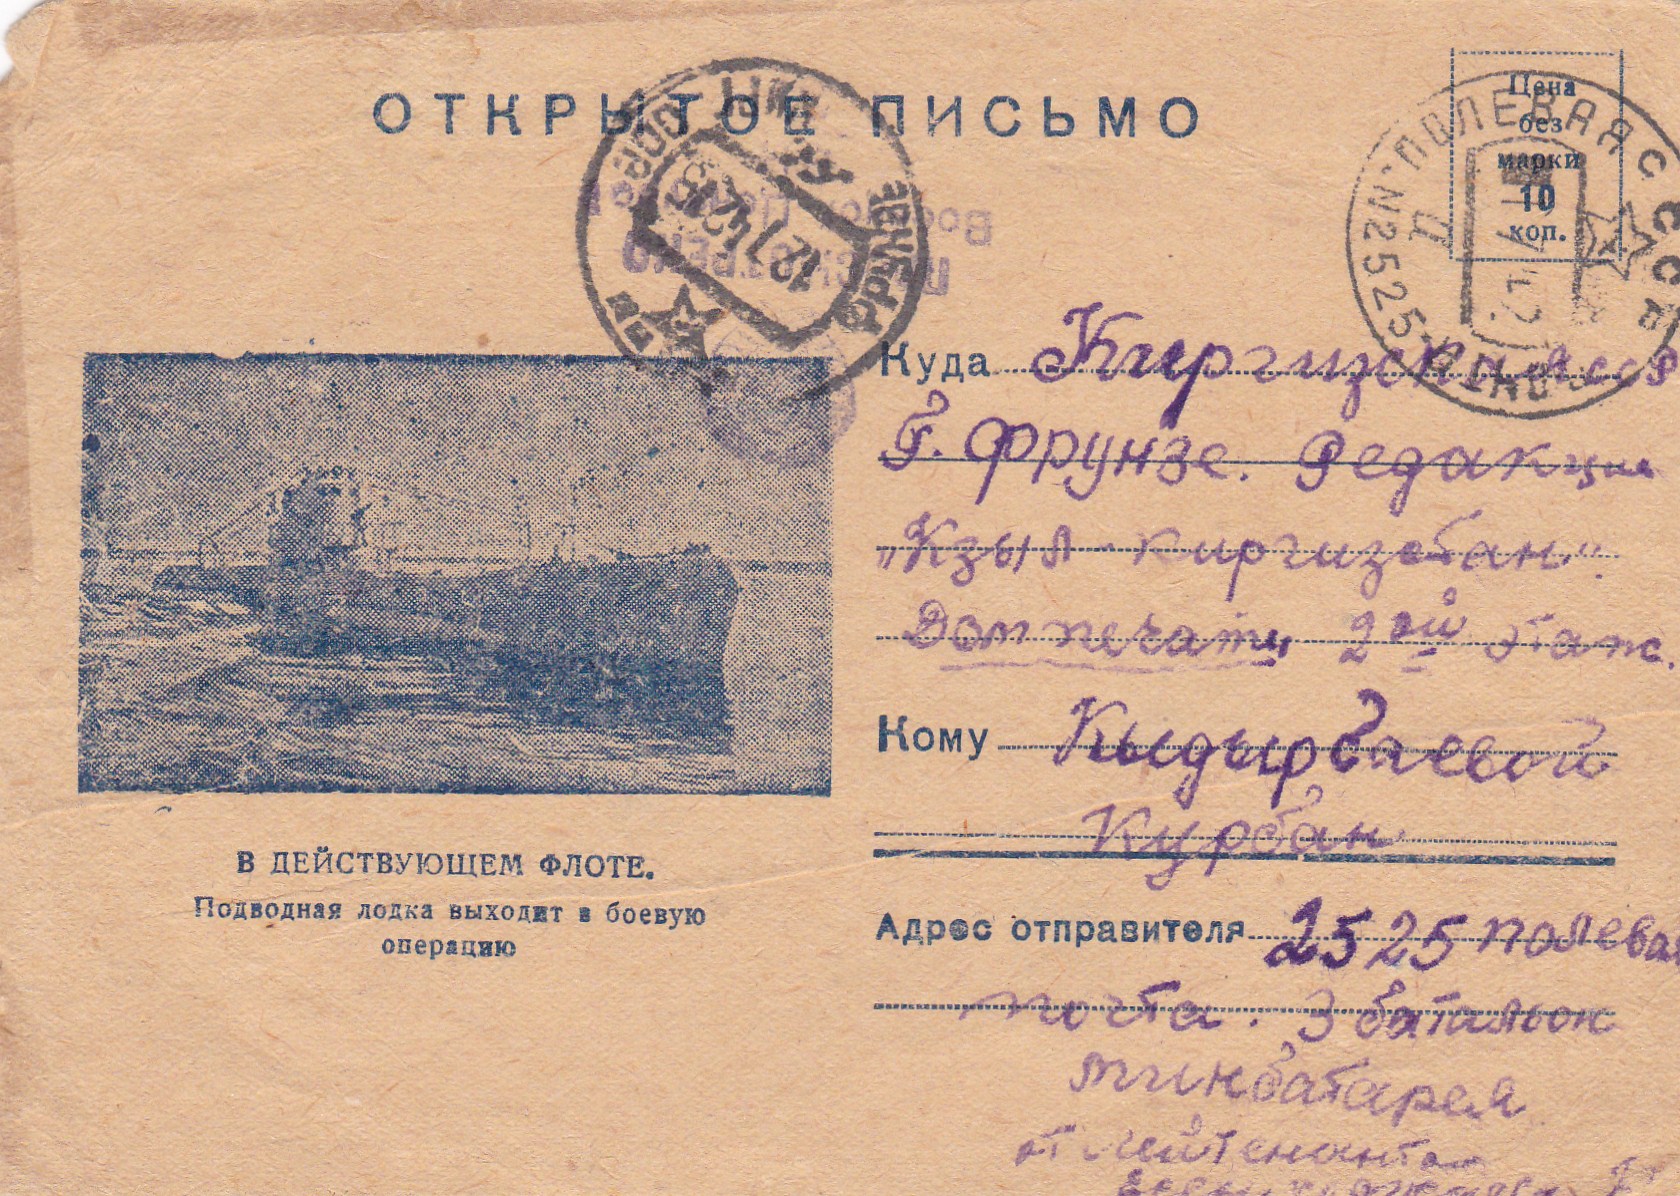 ОТКРЫТОЕ ПИСЬМО
Цена
без
марки
10
коп.
ПОЛЕВАЯ
СССР
N2525
ФРУНЗЕ
12 7 42
Куда Киргизская ССР
Г. Фрунзе. Редакция
„Кзыл-киргизстан".
Дом печати 2ой этаж.
Кому Кыдырбаевой
Курбан
Адрес отправителя 2525 полевая
почта. 3 батальон
минбатарея
от лейтенанта
В ДЕЙСТВУЮЩЕМ ФЛОТЕ.
Подводная лодка выходит в боевую
операцию